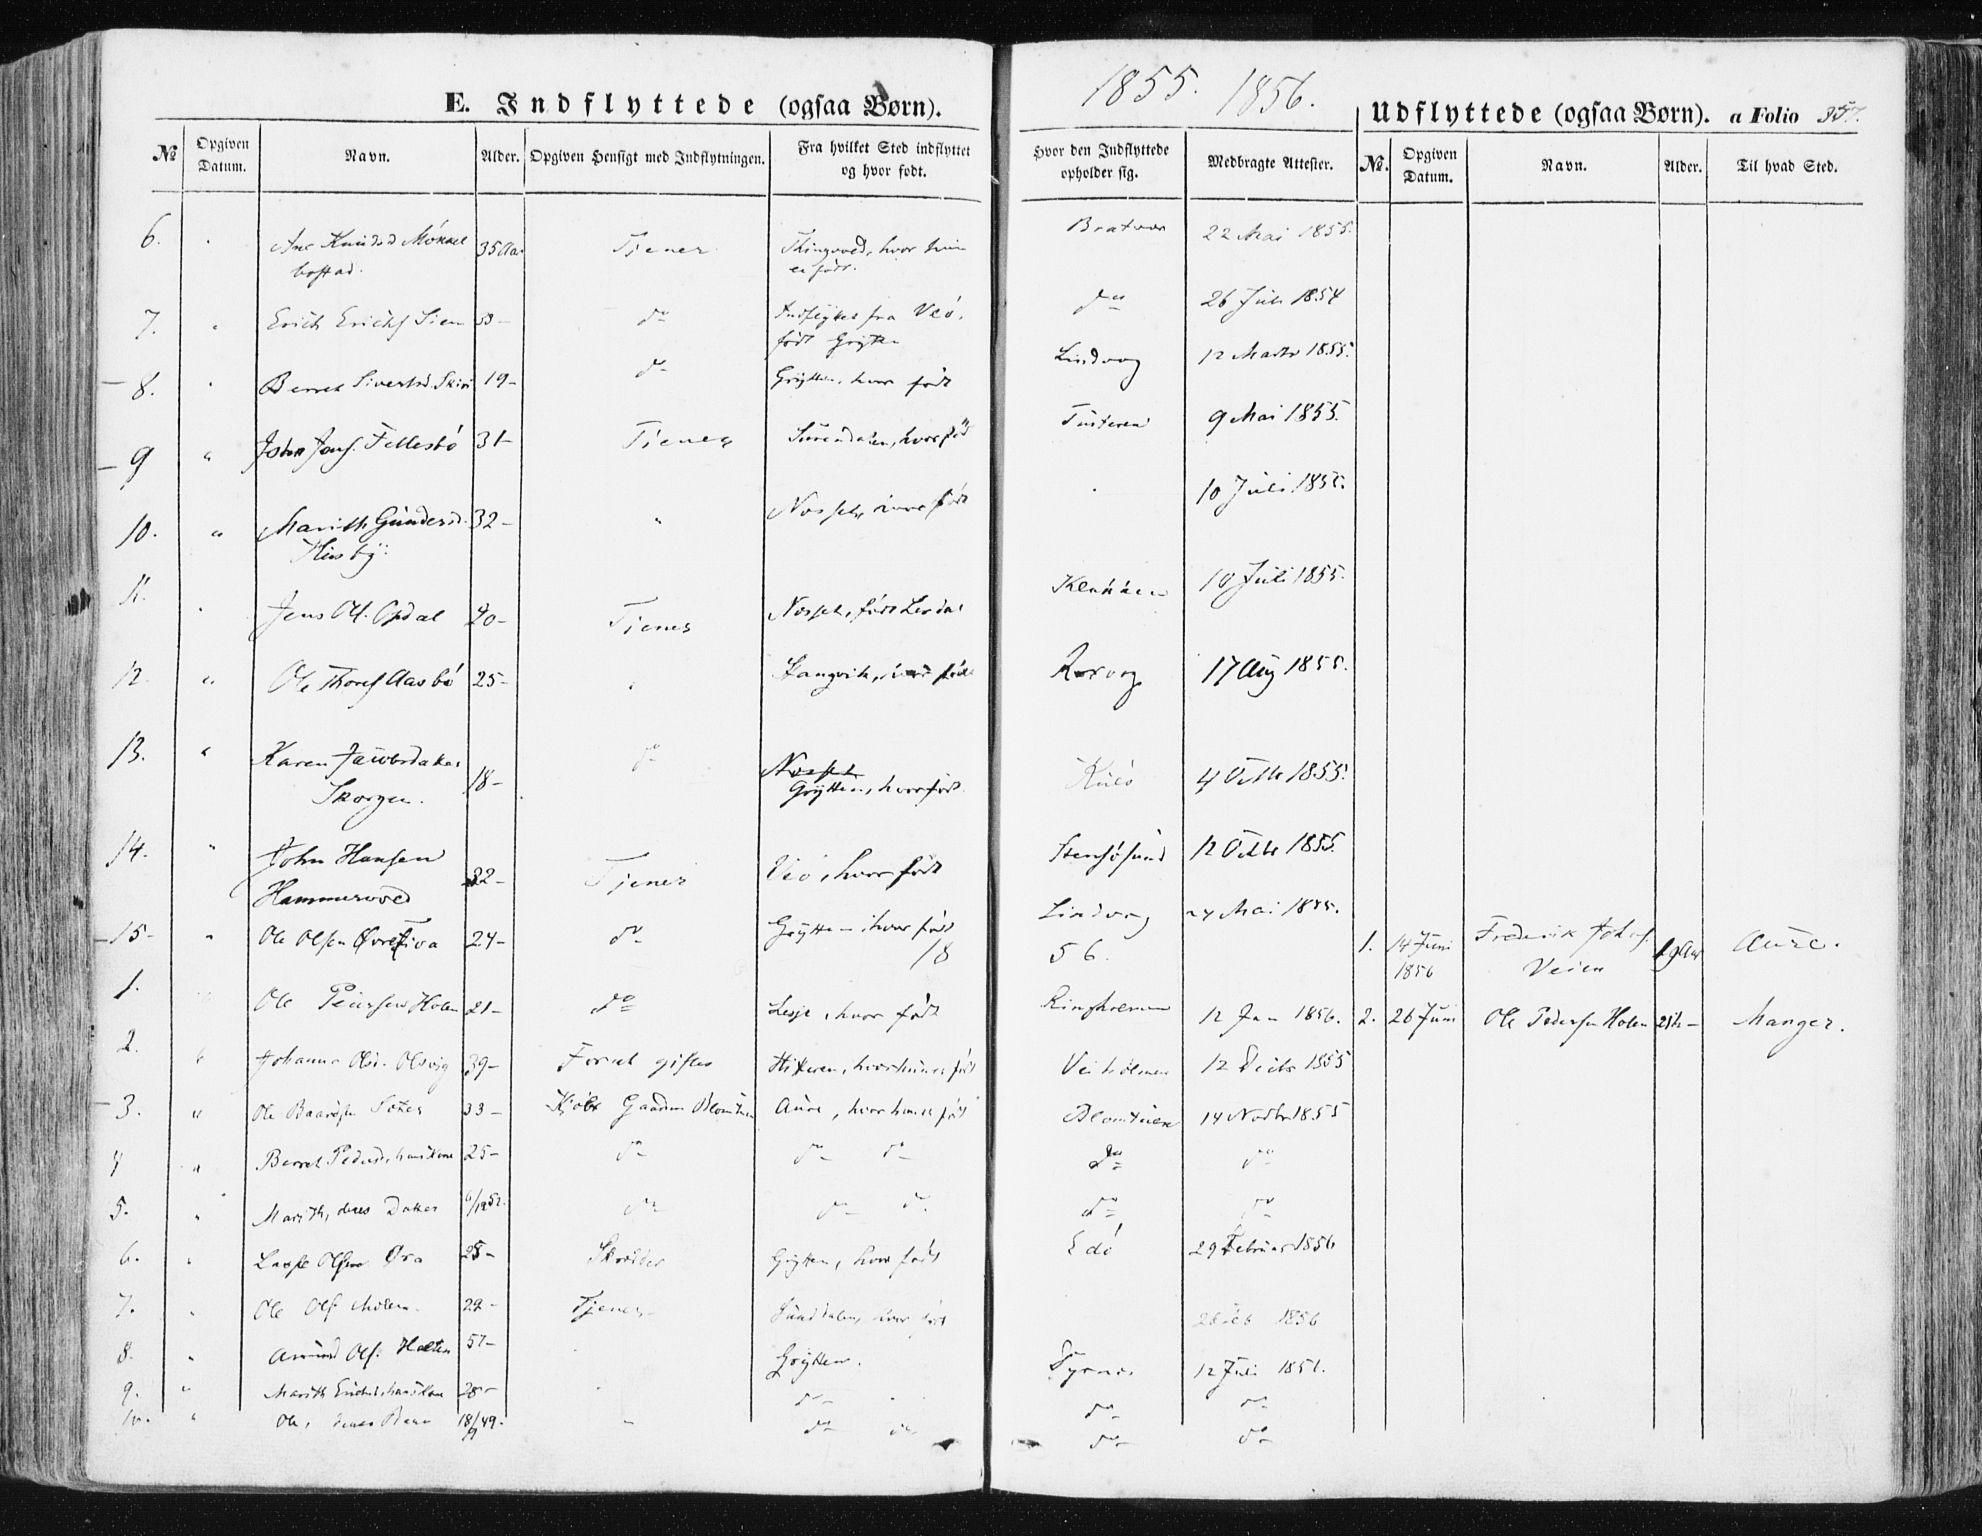 1855. 1856.
E. Indflyttede (ogsaa Børn).
Udflyttede (ogsaa Børn). a Folio 357.
№ Opgiven Datum. Navn. Alder. Opgiven Hensigt med Indflytningen. Fra hvilket Sted indflyttet og hvor født. Hvor den Indflyttede opholder sig. Medbragte Attester. №. Opgiven Datum. Navn. Alder. Til hvad Sted.
6. Knudsd 35 Aar Tjener Thingvold, hvor hun Bratvær 22 Mai 1855.
er født.
7. " Erich Erichs. 53- do Indflyttet fra Veö, do 26 Juli 1854
født Grytten
8. Berret Sivertsd. 19- do Grytten, hvor født Lindvog 12 Marts 1855.
9 " John Fellesbö 31- Tjener Surendalen, hvor född Tusteren 9 Mai 1855.
10. " Marith Gundersd. 32- " Nosset, hvor født 10 Juli 1855.
Husby.
11. Jens Ols. Opdal 20- Tjener Nosset, født 10 Juli 1855.
12. " Ole Thors. Aasbö 25- Stangvik, hvor född Rorvog 17 Aug 1855.
13. " Karen Jacobsdatter 18- do Nosset Kulö 4 Octbr 1855.
Skorgen. Grytten, hvor født.
14. " John Hansen 32- Tjener Veö, hvor født Stensösund 12 Octbr 1855.
Hammervold
15- " Ole Olsen Øvre 24- do Grytten hvor født Lindvog Mai 1855.
18 56.
1. 14 Juni 1856 Frederik Johs. Veien 19 Aar Aure.
1. Ole Pedersen Holen 21- do Lesje, hvor født Ringholmen 12 Jan 1856.
2. 26 Juni Ole Pedersen Holen 21 Manger.
2. " Johanna Olsd. Olsvig 39- For at giftes Hitteren, hvor hun er født Veiholmen 12 Decbr 1855
3. " Ole Baardsen 33- Kjöbt Gaarden Blomtuen Aure, hvor han er født Blomtuen 14 Novbr 1855
4 " Berret Pedersd, hans Kone 25- do do do do do
5. " Marith, deres Datter 6/12 52. do do do do do
6. " Lasse Olsen Øra 25- Skrædder Grytten, hvor født Edö 29 Februar 1856
7. " Ole Ols. 22- Tjener Sunddalen, hvor født 1856
8. " Amund Ols. 57- Grytten. 12 Juli
9. " Marith hans Kone 28- do do do
10. " Ole, deres Barn 18/9 49. " do do do do